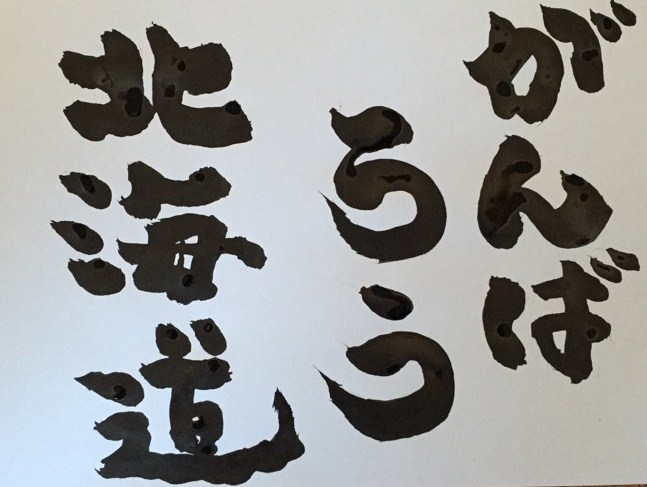 がんば
ろう
北海道